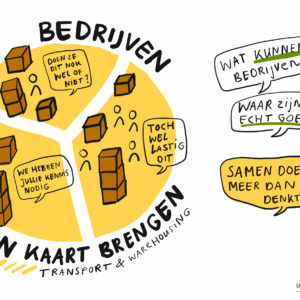 BEDRIJVEN
DOEN ZE
DIT NOU
WEL OF
NIET?
TOCH
WEL
LASTIG
DIT
WE HEBBEN
JULLIE KENNIS
NODIG
N KAART BRENGEN
TRANSPORT & WAREHOUSING
WAT KUNNEN
BEDRIJVEN
WAAR ZIJN
ECHT GOE
SAMEN DOE
MEER DAN
DENKT